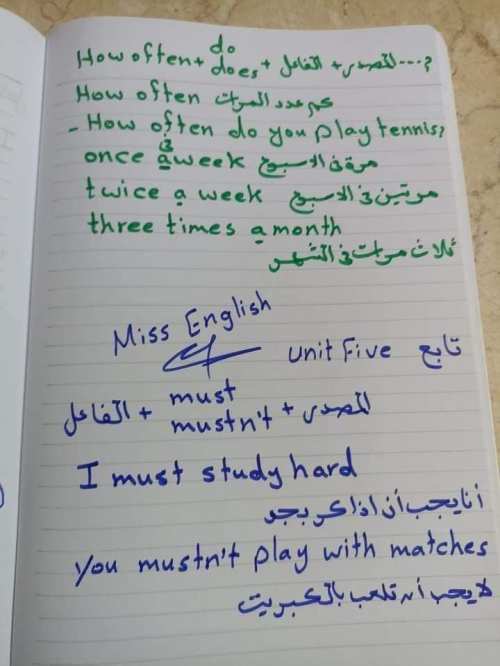 How often + do does + الفاعل + المصدر ....؟
How often كم عدد المرات
- How often do you play tennis?
once a week مرة فى الاسبوع
twice a week مرتين فى الاسبوع
three times a month
ثلاث مرات فى الشهر
Miss English
Unit Five تابع
الفاعل + must mustn't + المصدر
I must study hard
أنا يجب أن اذاكر بجد
you mustn't play with matches
لا يجب أن تلعب بالكبريت